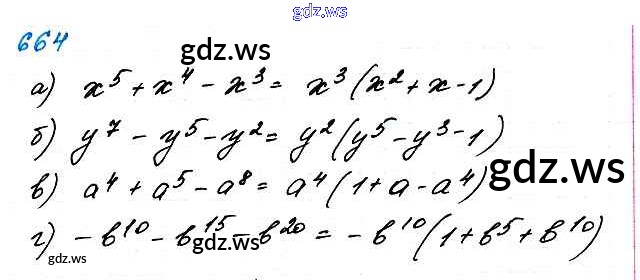 gdz.ws
664
gdz.ws
а) x⁵ + x⁴ - x³ = x³ (x² + x - 1)
б) y⁷ - y⁵ - y² = y² (y⁵ - y³ - 1)
gdz.ws
в) a⁴ + a⁵ - a⁸ = a⁴ (1 + a - a⁴)
г) - b¹⁰ - b¹⁵ - b²⁰ = - b¹⁰ (1 + b⁵ + b¹⁰)
gdz.ws
gdz.ws
gdz.ws